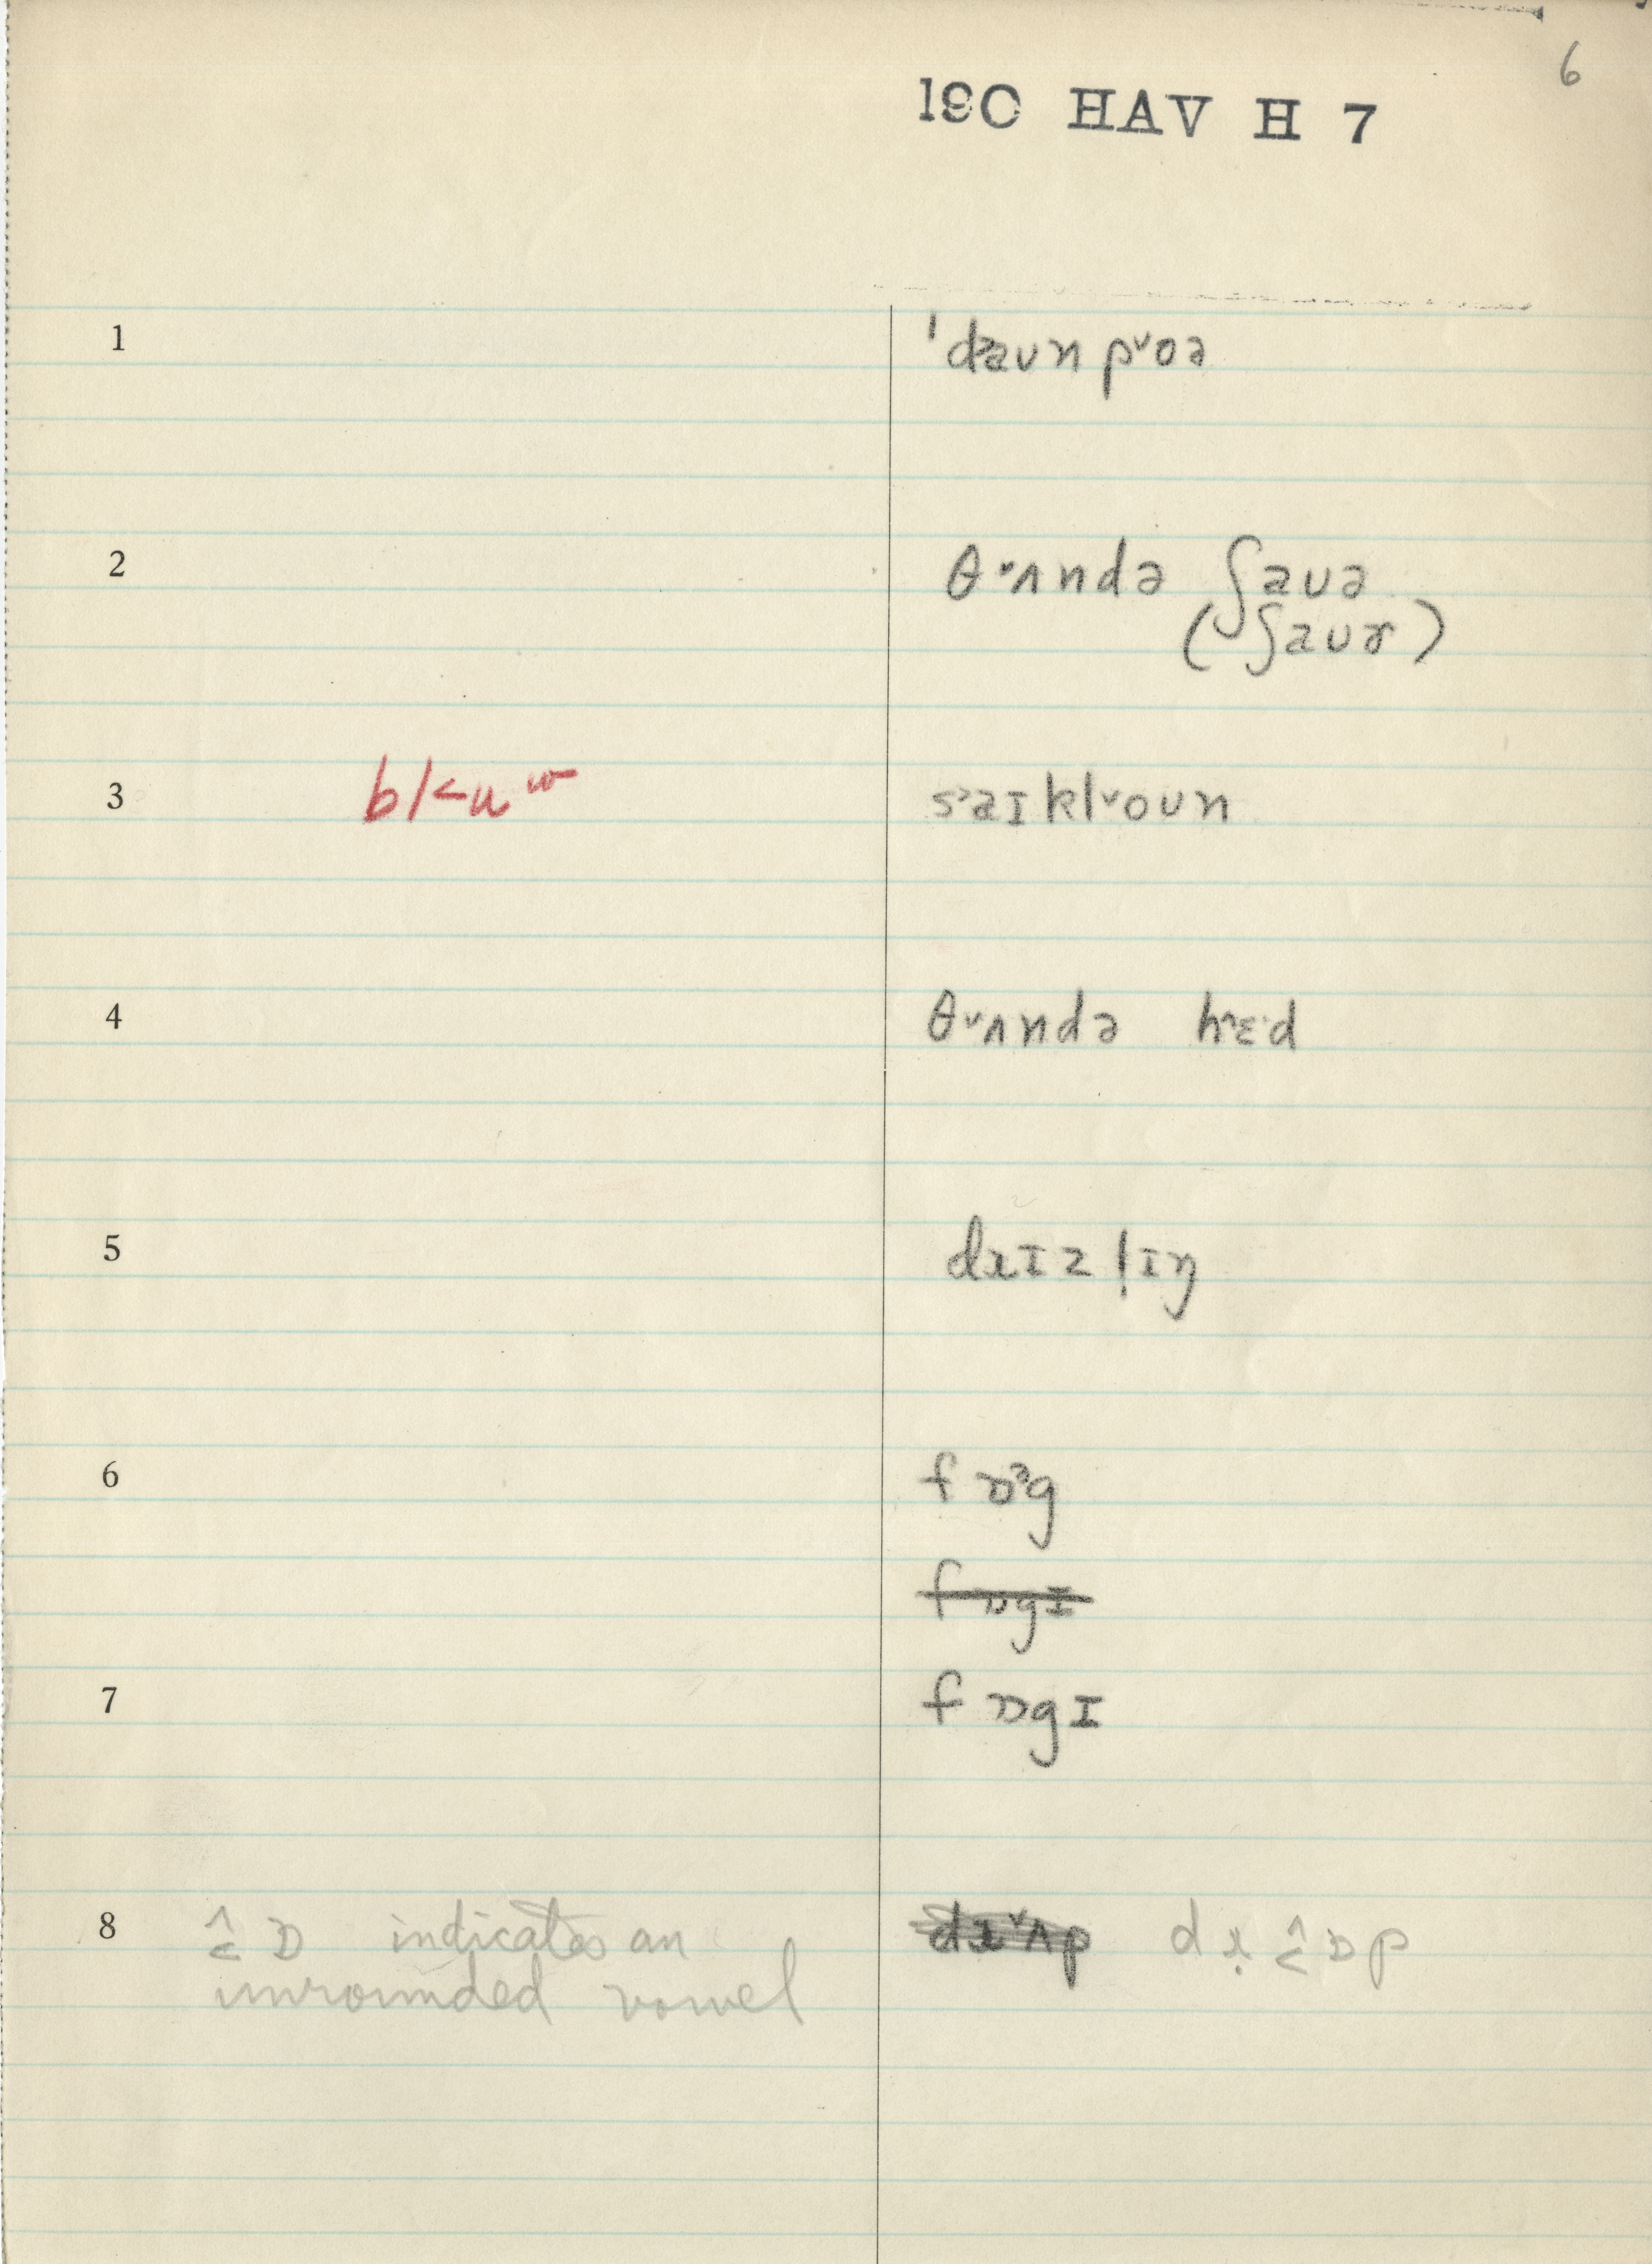 6
190 HAV H 7
1 ˈdaʊn pˇoə
2 θˇʌndə ʃaʊə
(ʃaʊɚ)
3 b/<u w s˃aɪklˇoʊn
4 θˇʌndə hˆɛˑd
5 dɹɪzl̩ɪŋ
6 f ɒᵊg
f ɒgɪ
7 f ɒgɪ
8 ɒ indicates an
unrounded vowel
dɹˇʌp dɹ̣ ɒp